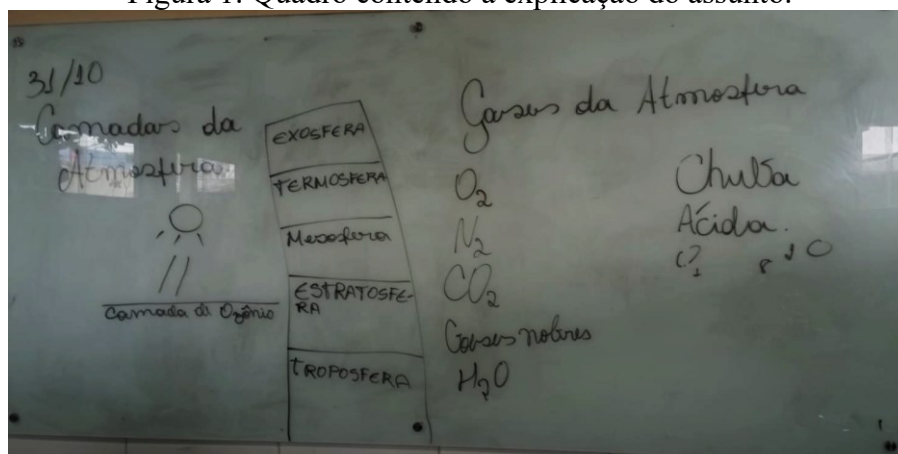 Figura 1: Quadro contendo a explicação do assunto.
31/10
Camadas da
Atmosfera
Camada de Ozônio
EXOSFERA
TERMOSFERA
Mesosfera
ESTRATOSFE-
RA
TROPOSFERA
Gases da Atmosfera
O₂
N₂
CO₂
Gases nobres
H₂O
Chuva
Ácida.